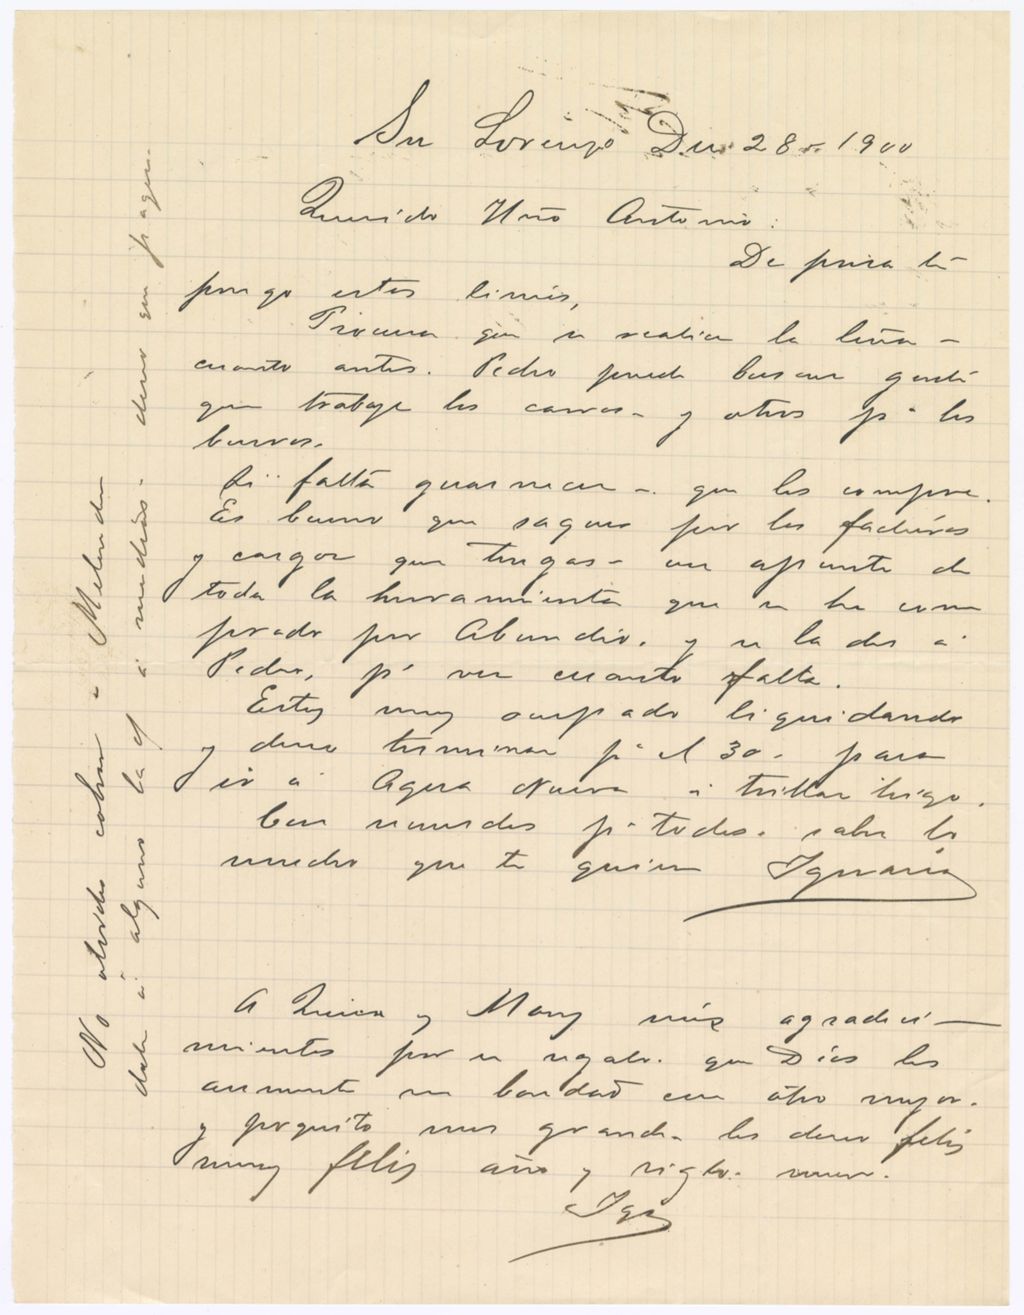 Sn Lorenzo Dic 28 - 1900
Querido Hño Antonio:
De prisa té
pongo estas lineas,
Procura que se realice la leña -
cuanto antes. Pedro puede buscar gente
que trabaje los carros - y otros pª los
burros.
Si falta guarnecer - que las compre.
Es bueno que saques por las facturas
y cargos que tengas - un apunte de
toda la herramienta que se ha com
prado por Abundio. y se la des á
Pedro, pª ver cuanto falta.
Estoy muy ocupado liquidando
y deseo terminar pª el 30 - para
ir á Agua Nueva á trillar trigo.
Con recuerdos pª todos. sabes lo
mucho que te quiere Ignacio
A Quica y Mary mis agradeci-
mientos por su regalo. que Dios les
aumente su bondad con otro mejor.
y poquito mas grande. les deseo feliz
muy feliz año y siglo nuevo.
Igo
No olvides cobrar a Melendez
dale á alguno la á medias -
que paguen.